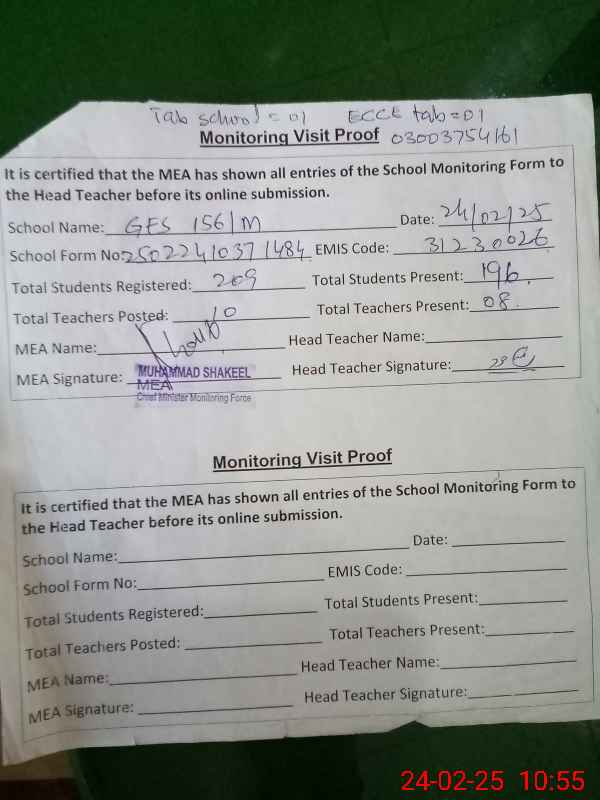 Tab school = 01 ECCE tab = 01
Monitoring Visit Proof 03003754161
It is certified that the MEA has shown all entries of the School Monitoring Form to
the Head Teacher before its online submission.
School Name: GES 156/M Date: 24/02/25
School Form No: 2502241037 1484 EMIS Code: 31230026
Total Students Registered: 209 Total Students Present: 196.
Total Teachers Posted: 10 Total Teachers Present: 08.
MEA Name: Head Teacher Name:
MEA Signature: MUHAMMAD SHAKEEL Head Teacher Signature:
MEA
Chief Minister Monitoring Force
Monitoring Visit Proof
It is certified that the MEA has shown all entries of the School Monitoring Form to
the Head Teacher before its online submission.
School Name: Date:
School Form No: EMIS Code:
Total Students Registered: Total Students Present:
Total Teachers Posted: Total Teachers Present:
MEA Name: Head Teacher Name:
MEA Signature: Head Teacher Signature:
24-02-25 10:55